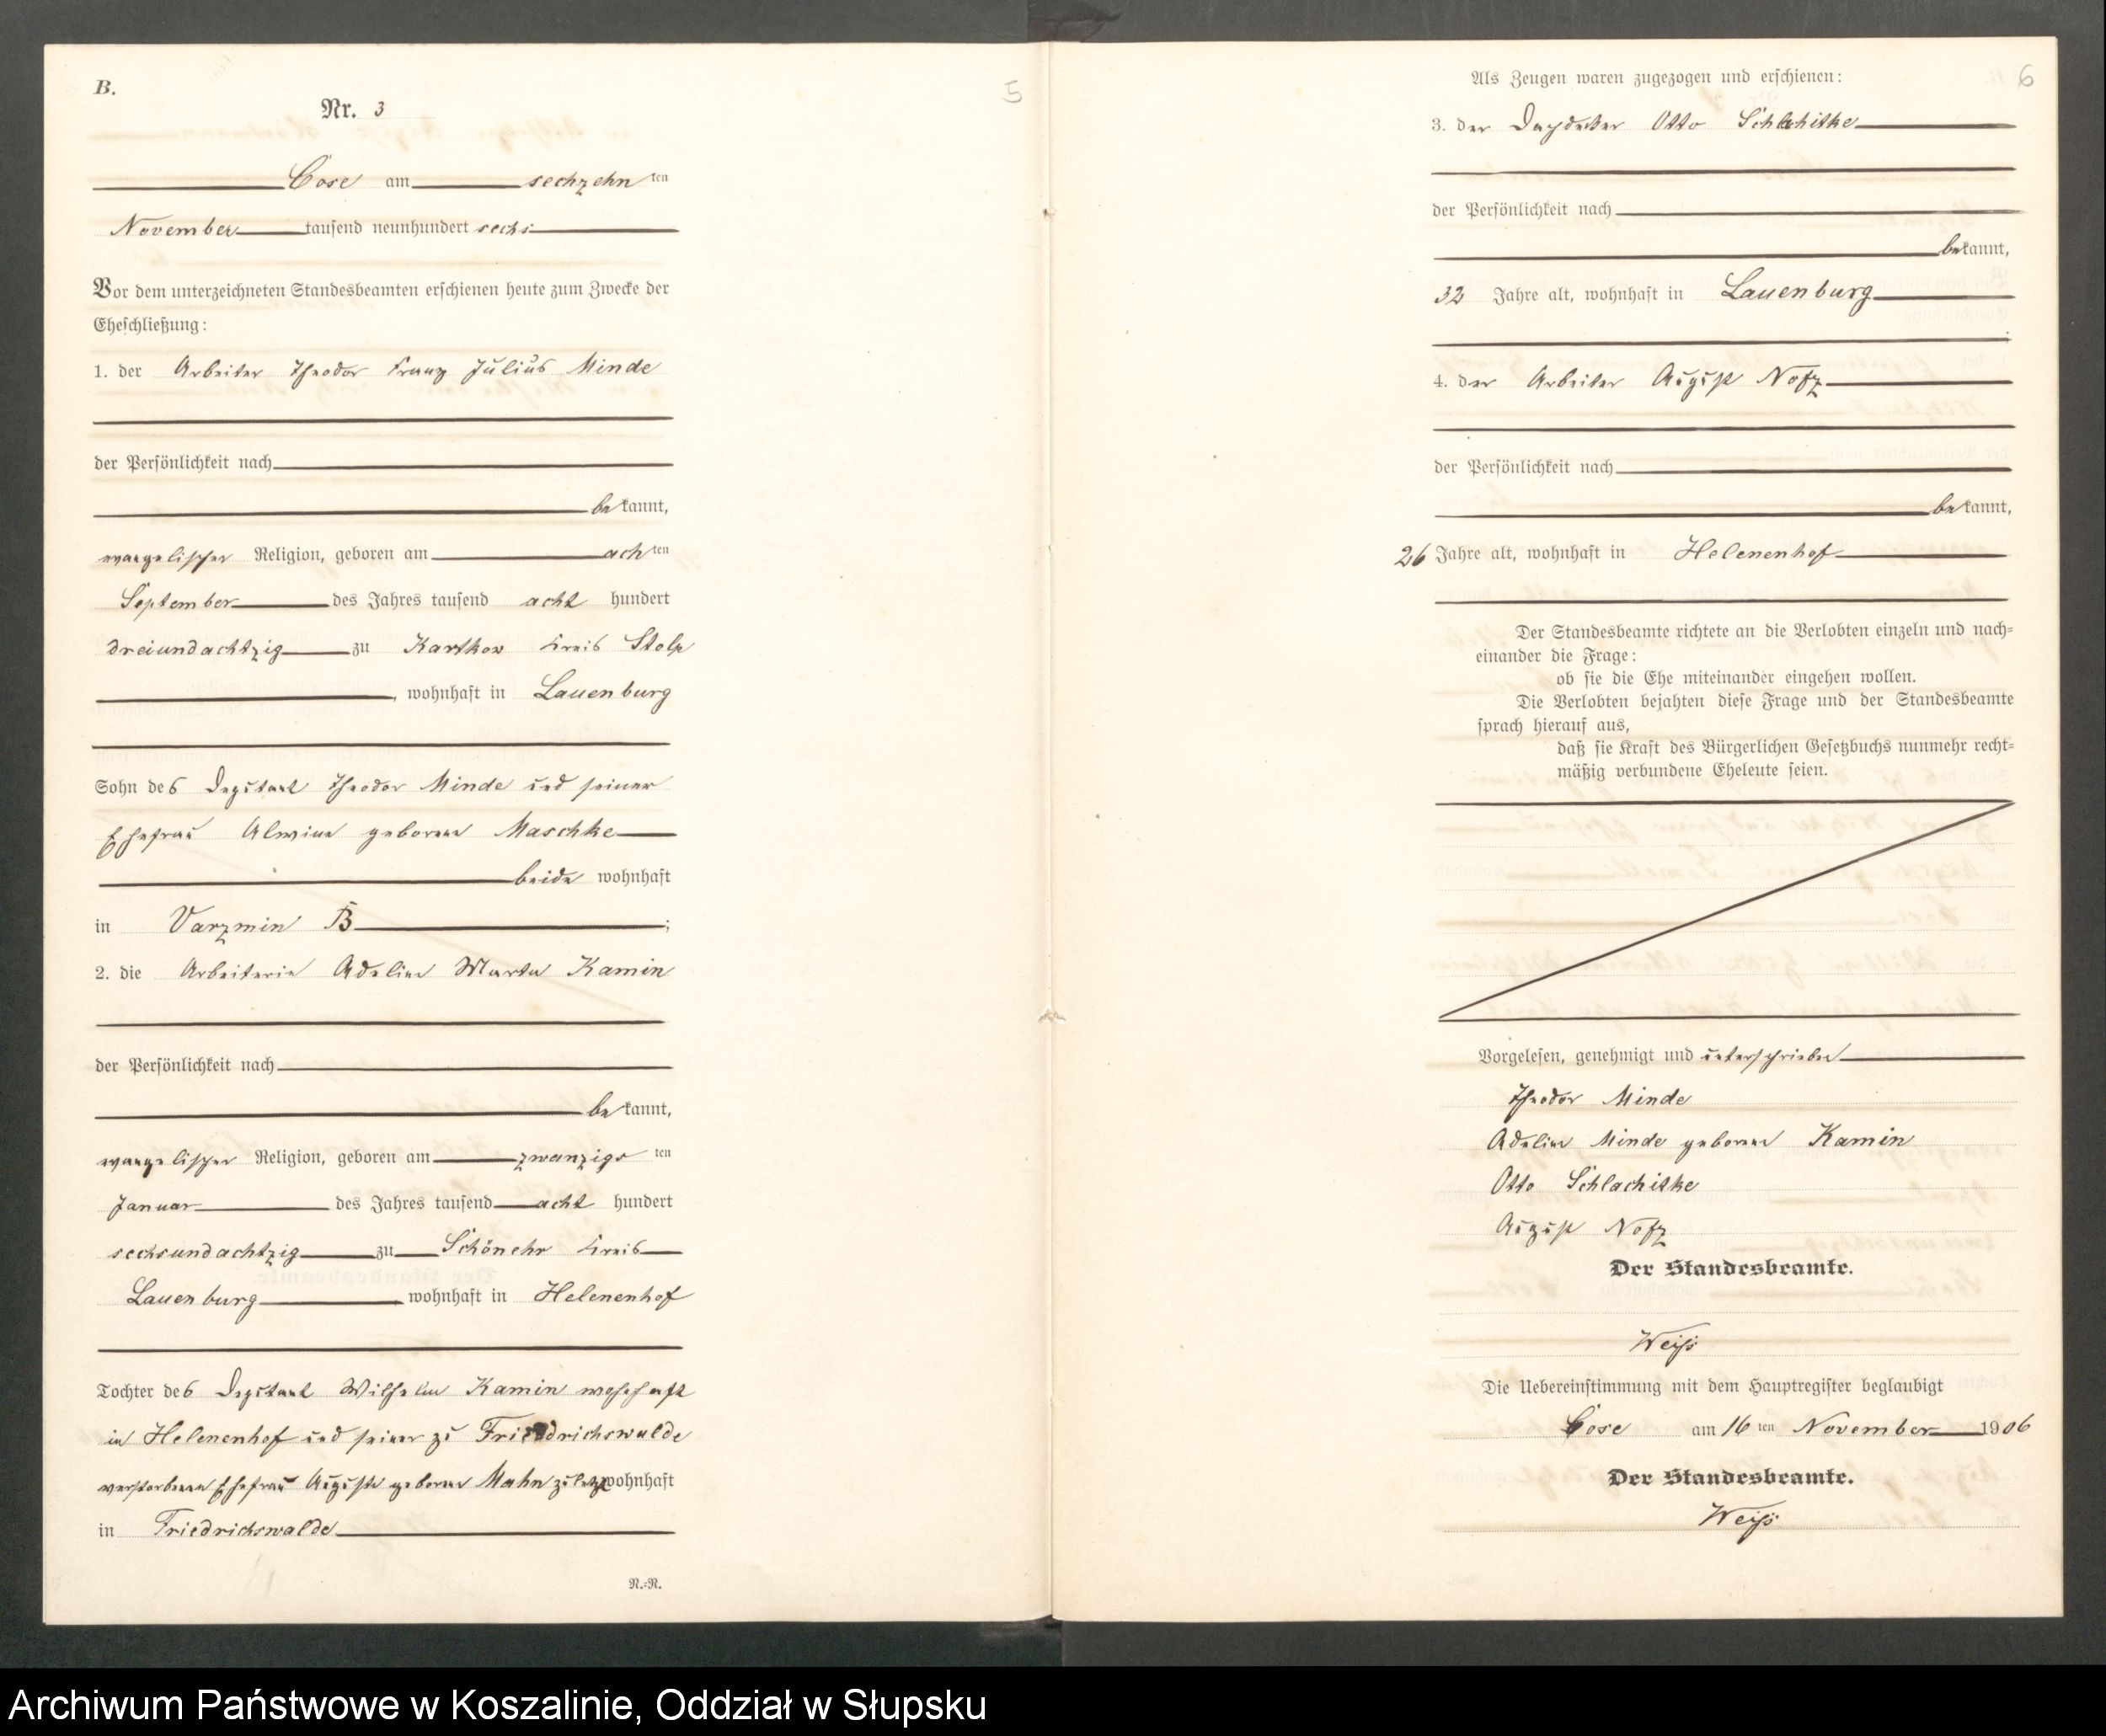 B.
Nr. 3
Cose am sechzehn ten
November tausend neunhundert sechs
Vor dem unterzeichneten Standesbeamten erschienen heute zum Zwecke der
Eheschließung:
1. der Arbeiter Theodor Franz Julius Minde
der Persönlichkeit nach
bekannt,
evangelischer Religion, geboren am achten
September des Jahres tausend acht hundert
dreiundachtzig zu Karthow Kreis Stolp
, wohnhaft in Lauenburg
Sohn des Deputant Theodor Minde und seiner
Ehefrau Alwine geborene Maschke
beide wohnhaft
in Varzmin B ;
2. die Arbeiterin Adeline Marta Kamin
der Persönlichkeit nach
bekannt,
evangelischer Religion, geboren am zwanzigs ten
Januar des Jahres tausend acht hundert
sechsundachtzig zu Schönehr Kreis
Lauenburg wohnhaft in Helenenhof
Tochter des Deputant Wilhelm Kamin wohnhaft
in Helenenhof und seiner zu Friedrichswalde
verstorbenen Ehefrau Auguste geborene Mahn zuletzt wohnhaft
in Friedrichswalde
N.=N.
5
6
Als Zeugen waren zugezogen und erschienen:
3. der Dachdecker Otto Schlachitke
der Persönlichkeit nach
bekannt,
32 Jahre alt, wohnhaft in Lauenburg
;
4. der Arbeiter August Notz
der Persönlichkeit nach
bekannt,
26 Jahre alt, wohnhaft in Helenenhof
Der Standesbeamte richtete an die Verlobten einzeln und nach=
einander die Frage:
ob sie die Ehe miteinander eingehen wollen.
Die Verlobten bejahten diese Frage und der Standesbeamte
sprach hierauf aus,
daß sie Kraft des Bürgerlichen Gesetzbuchs nunmehr recht=
mäßig verbundene Eheleute seien.
Vorgelesen, genehmigt und unterschrieben
Theodor Minde
Adeline Minde geborene Kamin
Otto Schlachitke
August Notz
Der Standesbeamte.
Weiß
Die Uebereinstimmung mit dem Hauptregister beglaubigt
Cose am 16 ten November 1906
Der Standesbeamte.
Weiß
Archiwum Państwowe w Koszalinie, Oddział w Słupsku